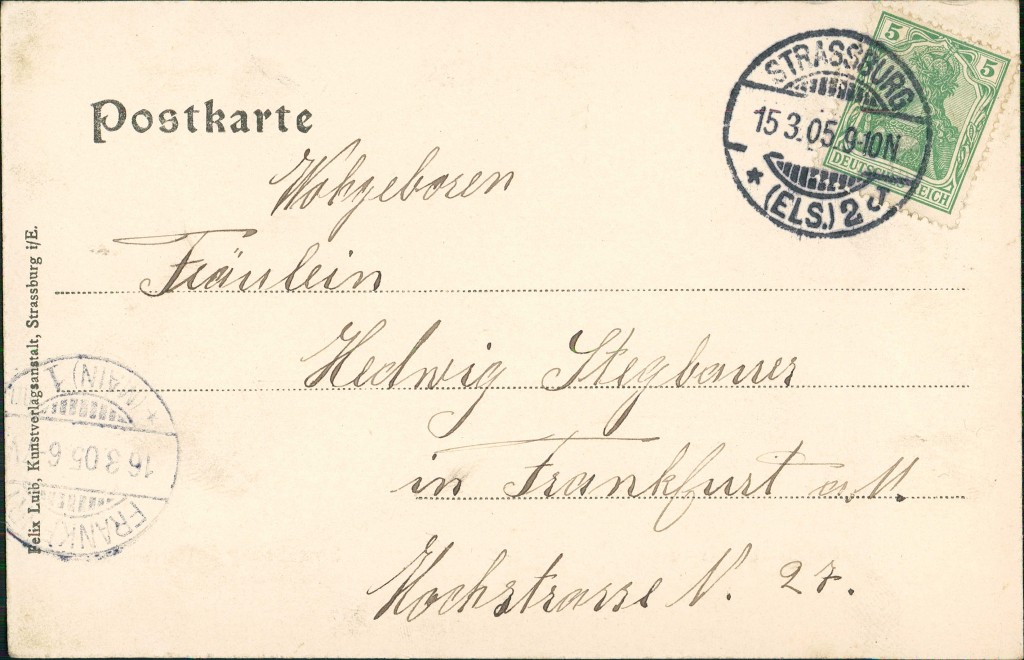 Postkarte
STRASSBURG
15.3.05.9-10N
* (ELS.) 2 J
5 5
DEUTSCHES REICH
Wohgeboren
Fräulein
Hedwig Stegbauer
in Frankfurt a.M.
Hochstrasse N. 27.
Felix Luib, Kunstverlagsanstalt, Strassburg i/E.
FRANK
16.3.05.6-
* (MAIN) 1